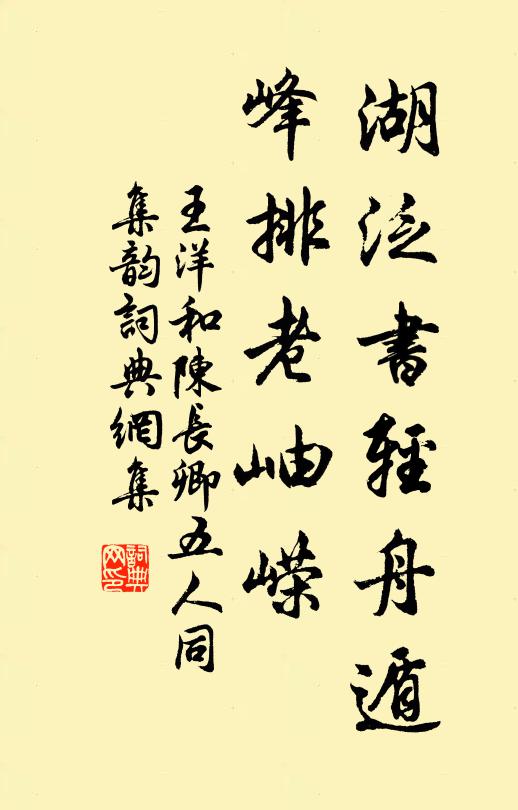 湖泛書輕舟遁
峰排老岫嶸
王洋和陳長卿五人同
集韵詞典網集
詞典
网印